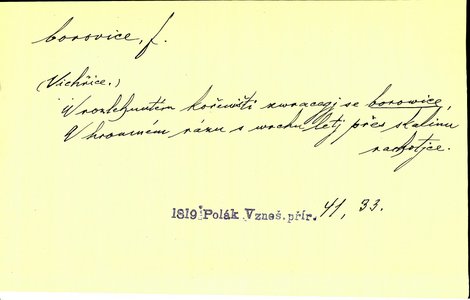 borovice, f.
(Vichřice.)
W rozlehnutém kořeništi zwracegj se borowice,
W hromném rázu s wrchu letj přes skalinu
rachotjce.
1819 Polák Vzneš. přír. 41, 33.